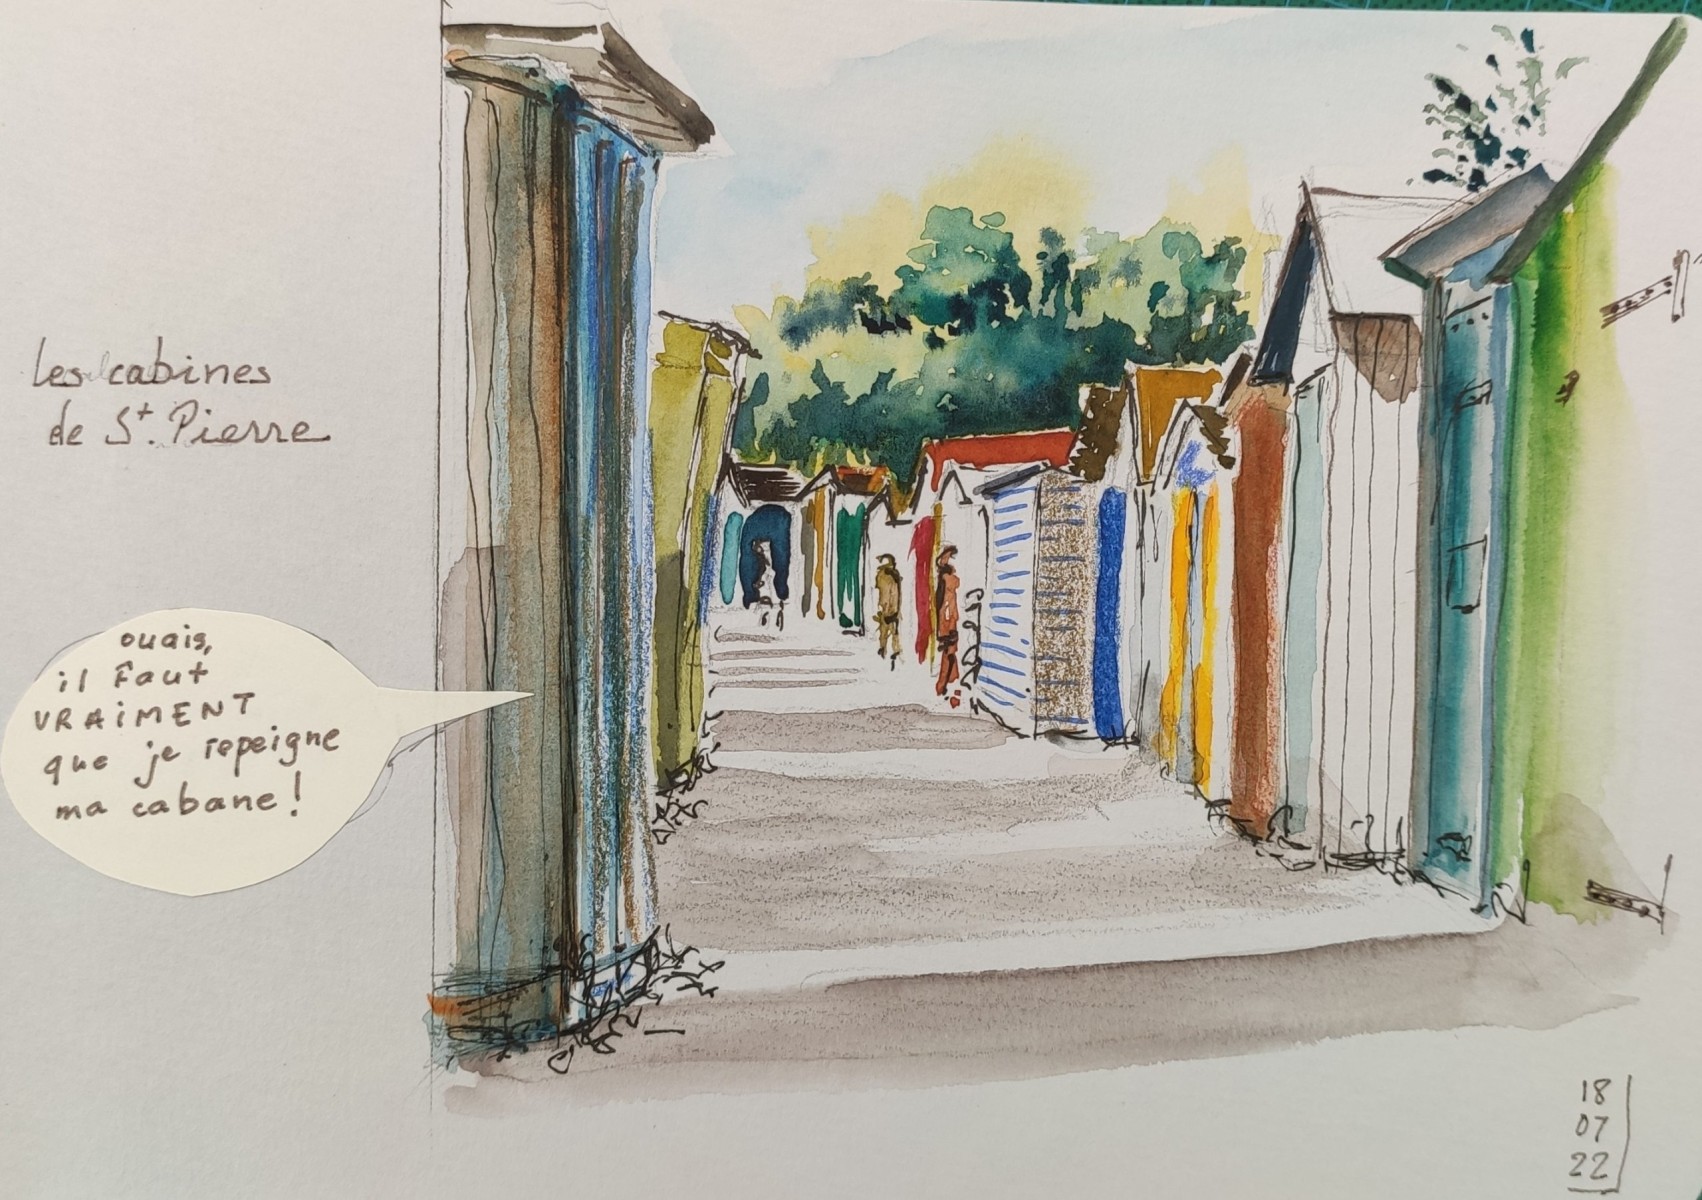 les cabines
de St. Pierre
ouais,
il faut
VRAiMENT
que je repeigne
ma cabane!
18
07
22